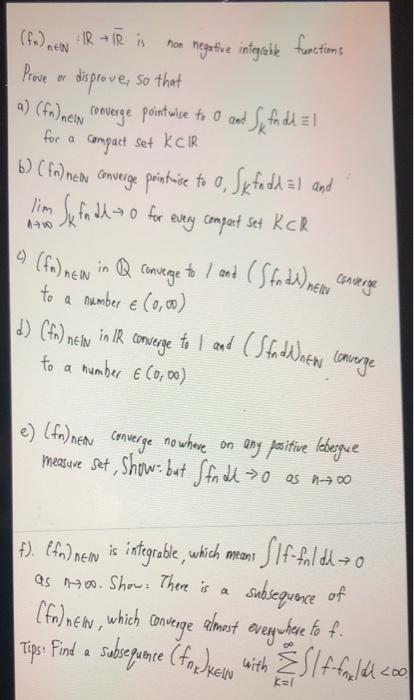 (fn)n∈ℕ : ℝ → ℝ̅ is non negative integrable functions
Prove or disprove, so that
a) (fn)n∈ℕ converge pointwise to 0 and ∫K fn dλ ≡ 1
for a compact set K⊂ℝ
b) (fn)n∈ℕ converge pointwise to 0, ∫K fn dλ ≡ 1 and
lim n→∞ ∫K fn dλ → 0 for every compact set K⊂ℝ
c) (fn)n∈ℕ in ℚ converge to 1 and (∫fn dλ)n∈ℕ converge
to a number ∈ (0,∞)
d) (fn)n∈ℕ in ℝ converge to 1 and (∫fn dλ)n∈ℕ converge
to a number ∈ (0,∞)
e) (fn)n∈ℕ converge nowhere on any positive lebergue
measure set, Show: but ∫fn dλ → 0 as n→∞
f). (fn)n∈ℕ is integrable, which means ∫|f-fn| dλ → 0
as n→∞. Show: There is a subsequence of
(fn)n∈ℕ, which converge almost everywhere to f.
Tips: Find a subsequence (fnk)k∈ℕ with ∞∑k=1 ∫|f-fnk|dλ <∞